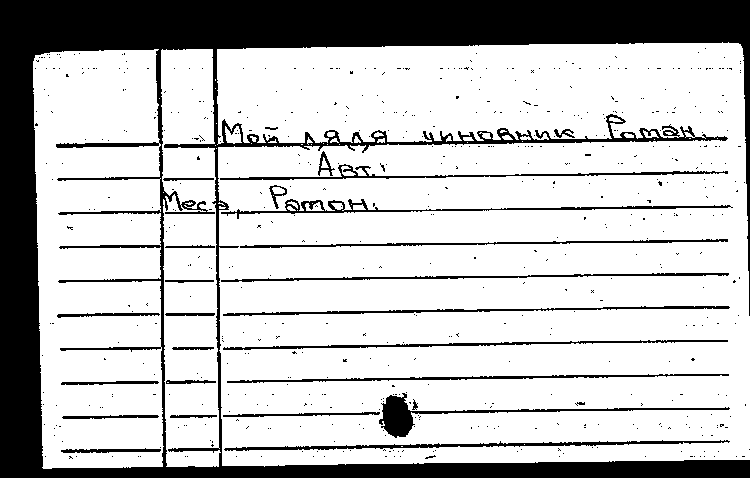 Мой дядя чиновник. Роман.
Авт.:
Меса, Рамон.